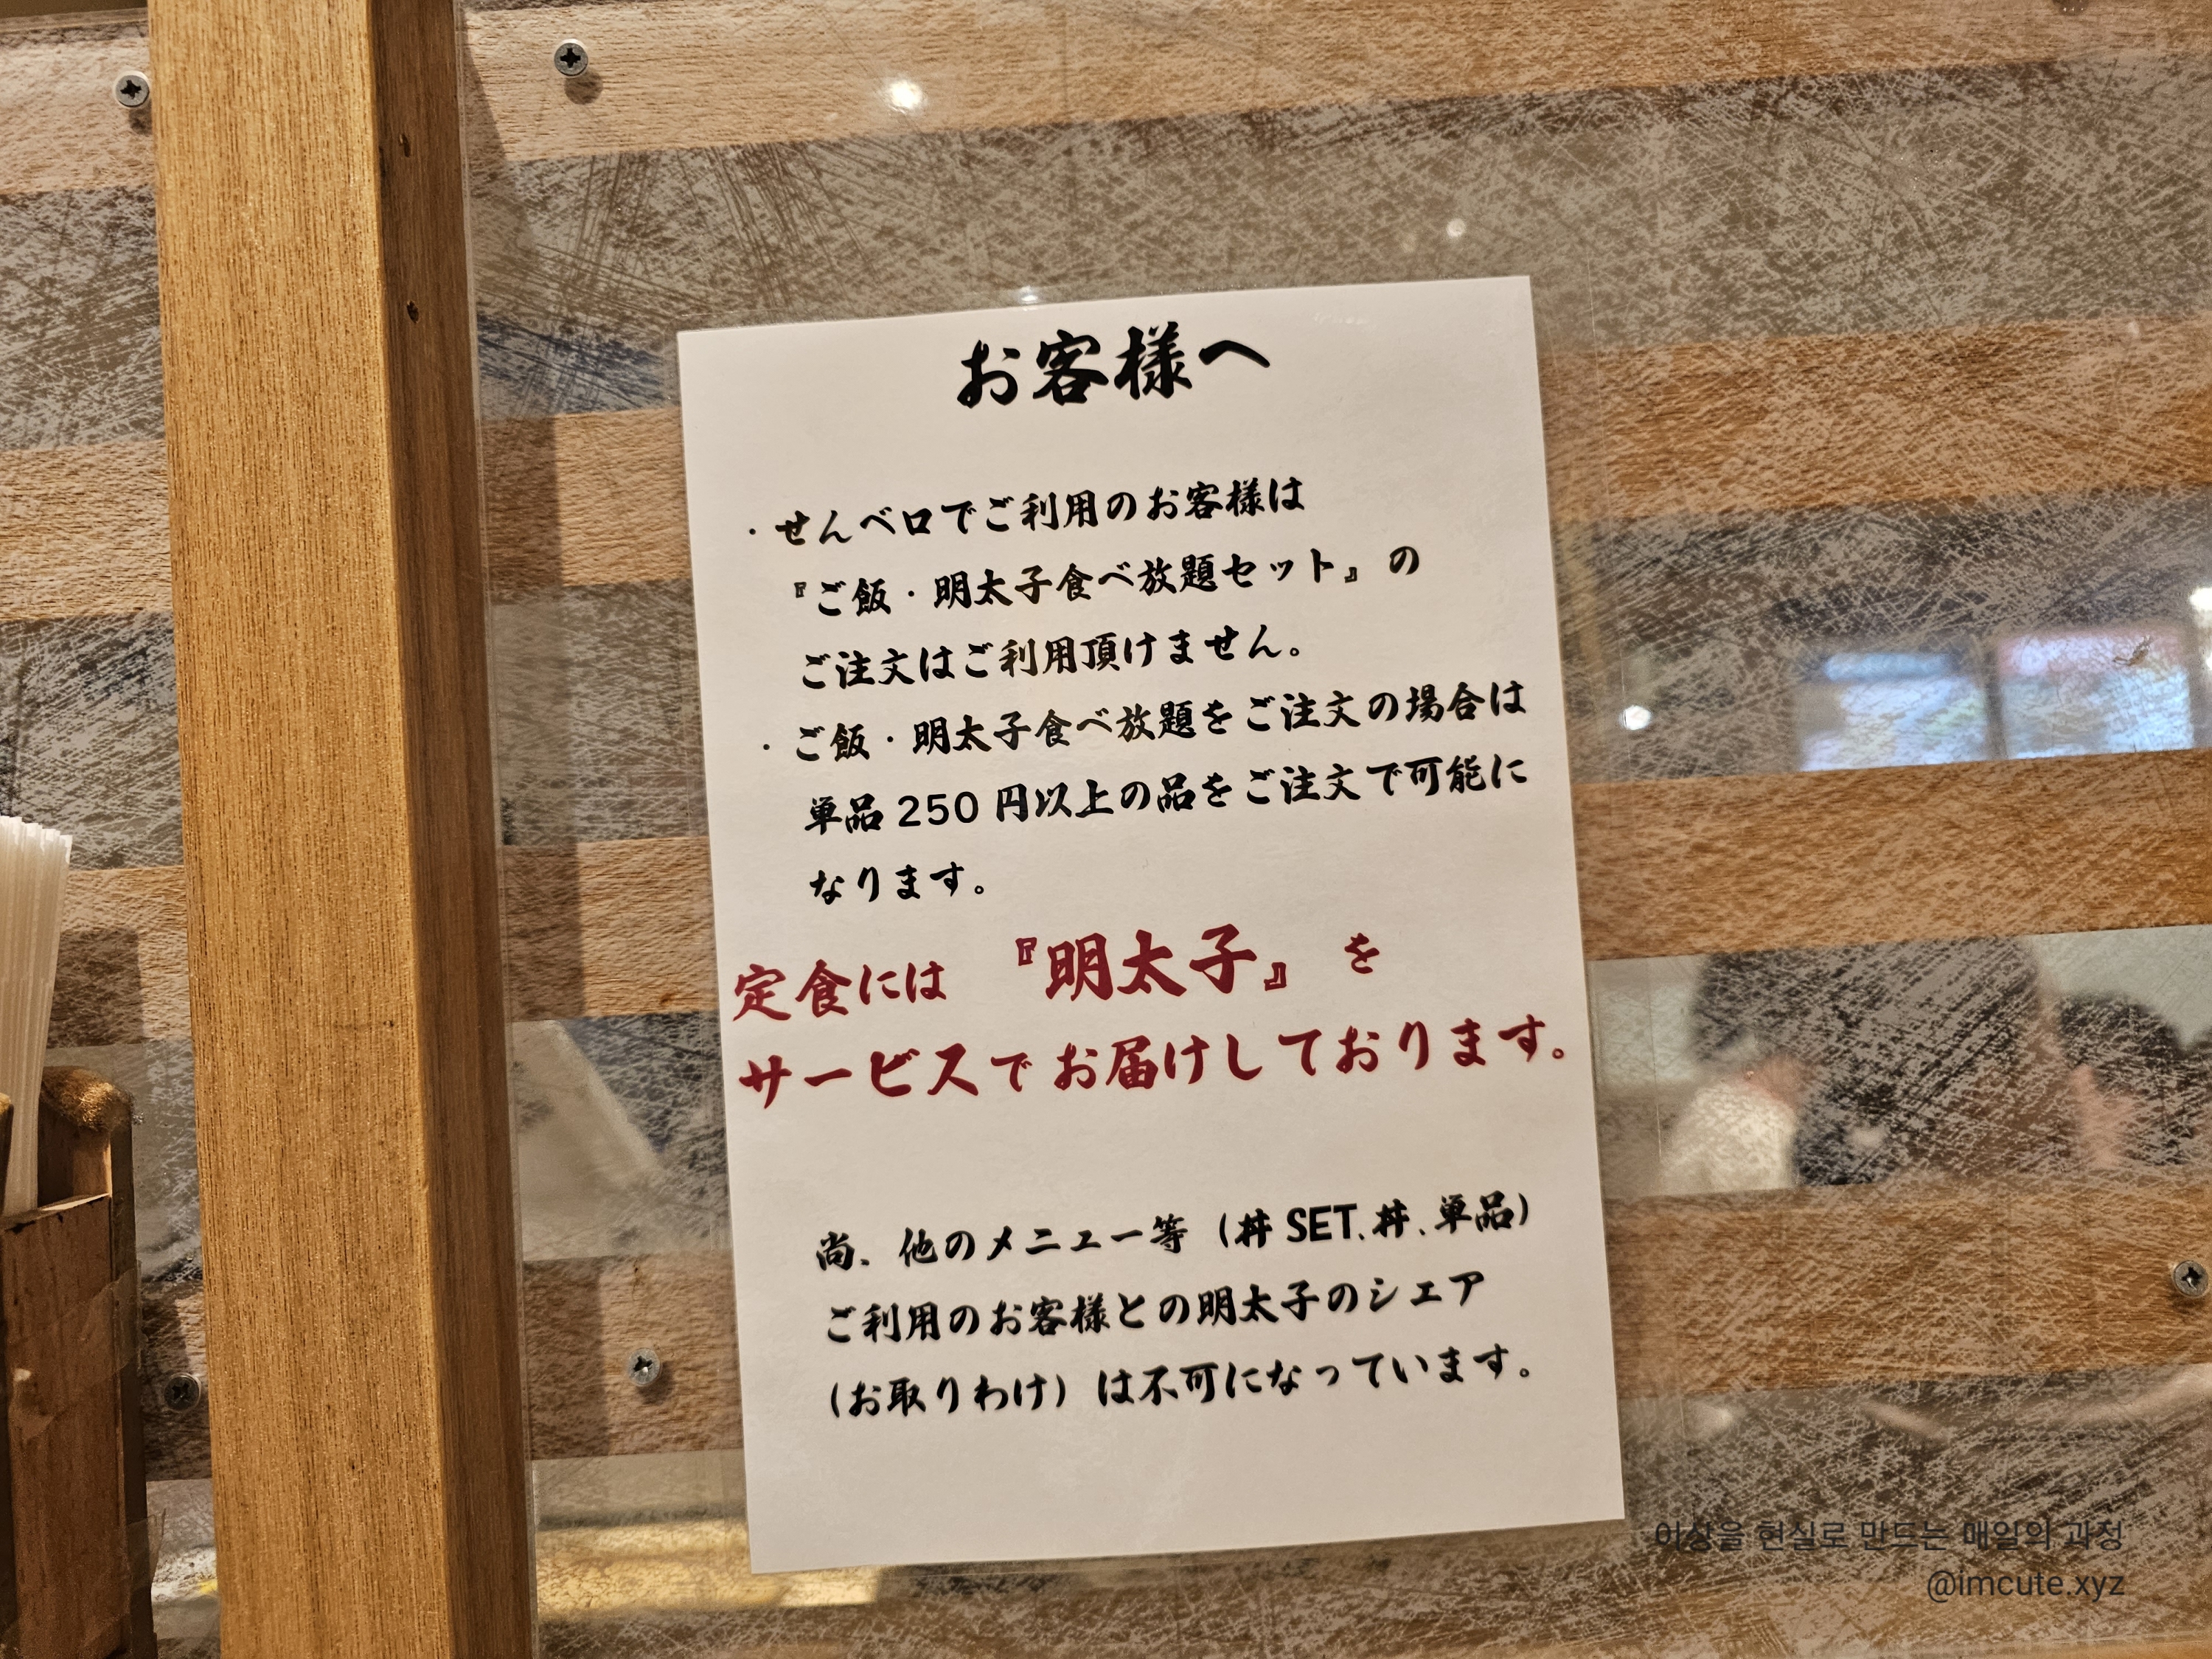 お客様へ
・せんベロでご利用のお客様は
『ご飯・明太子食べ放題セット』の
ご注文はご利用頂けません。
・ご飯・明太子食べ放題をご注文の場合は
単品250円以上の品をご注文で可能に
なります。
定食には『明太子』を
サービスでお届けしております。
尚、他のメニュー等（丼SET、丼、単品）
ご利用のお客様との明太子のシェア
（お取りわけ）は不可になっています。
이상을 현실로 만드는 매일의 과정
@imcute.xyz